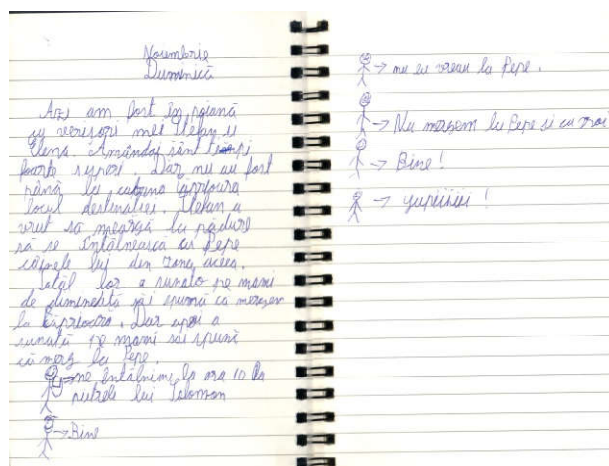 Noiembrie
Duminică
Azi am fost în poiană
cu verișorii mei Ștefan și
Elena. Amândoi sânt
foarte superi. Dar nu au fost
până la cabana căprioara
locul destinației. Ștefan a
vrut să meargă la pădure
să se întâlnească cu Pepe
câinele lui din zona aceea.
tatăl lor a sunato pe mami
de dimineață săi spună ca mergem
la Căprioara. Dar apoi a
sunato pe mami săi spună
că merg la Pepe.
→ ne întâlnim la ora 10 la
pietrele lui Solomon
→ Bine
→ nu eu vreau la Pepe.
→ Nu mergem la Pepe și cu voi
→ Bine!
→ yupiiiiii!